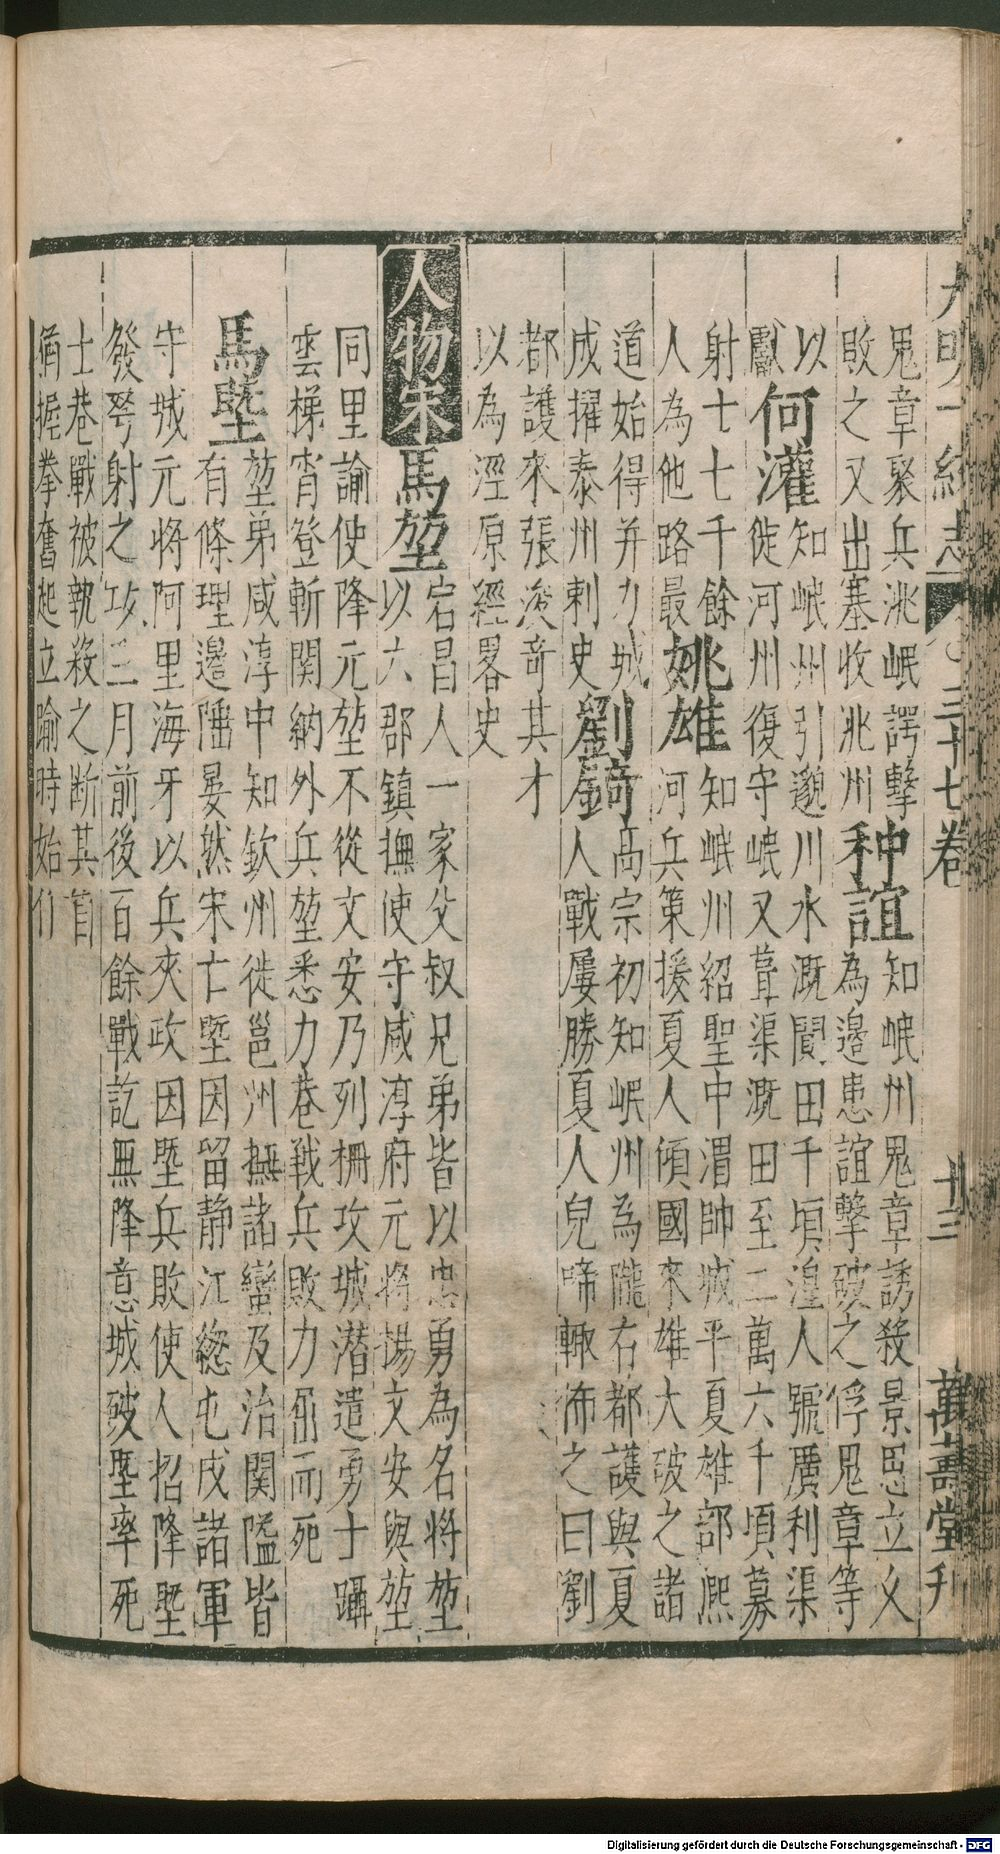 大明一統志 三十七卷 十三 萬壽堂刋
鬼章聚兵洮岷諤擊
敗之又出塞收洮州
种誼
知岷州鬼章誘殺景思立又
為邊患誼擊破之俘鬼章等
以
獻
何灌
知岷州引邈川水溉閒田千頃湟人號廣利渠
徙河州復守岷又葺渠溉田至二萬六千頃募
射士七千餘
人為他路最
姚雄
知岷州紹聖中渭帥城平夏雄部熈
河兵策援夏人傾國來雄大破之諸
道始得并力城
成擢泰州刺史
劉錡
高宗初知岷州為隴右都護與夏
人戰屢勝夏人兒啼輒怖之曰劉
都護來張浚竒其才
以為涇原經畧史
人物宋
馬堃
宕昌人一家父叔兄弟皆以忠勇為名將堃
以六郡鎮撫使守咸淳府元將楊文安與堃
同里諭使降元堃不從文安乃列柵攻城潜遣勇士躡
雲梯宵登斬関納外兵堃悉力巷戰兵敗力屈而死
馬塈
堃弟咸淳中知欽州徙邕州撫諸蠻及治関隘皆
有條理邊陲晏然宋亡塈因留静江緫屯戍諸軍
守城元將阿里海牙以兵夾攻因塈兵敗使人招降塈
發弩射之攻三月前後百餘戰訖無降意城破塈率死
士巷戰被執殺之断其首
猶握拳奮起立踰時始仆
Digitalisierung gefördert durch die Deutsche Forschungsgemeinschaft - DFG